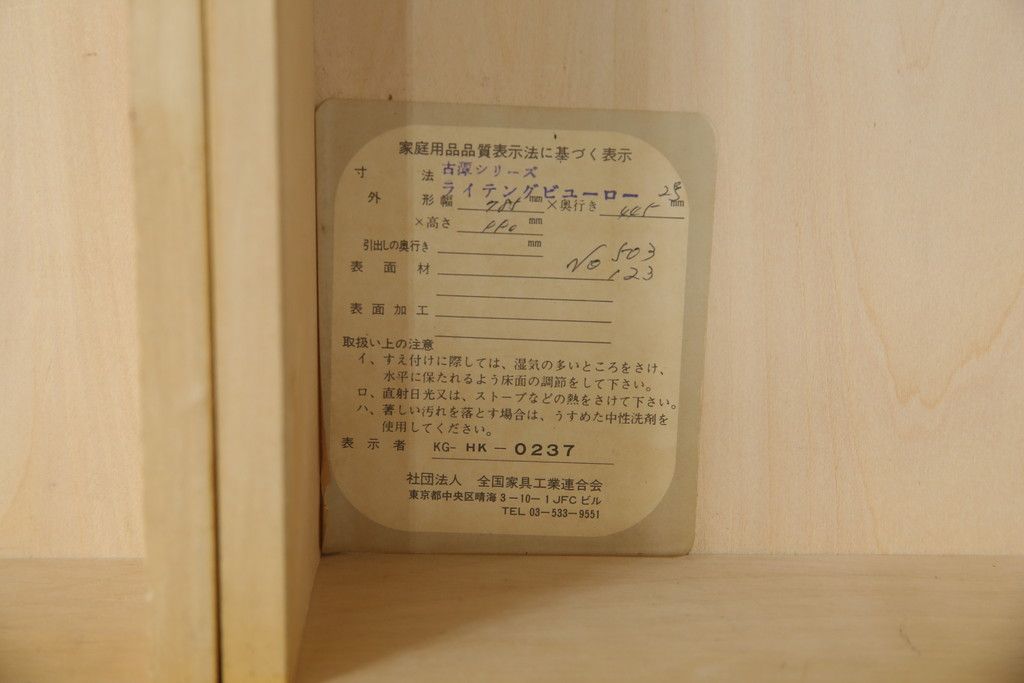 家庭用品品質表示法に基づく表示
寸 法 古源シリーズ
ライテングビューロー
外 形 幅 mm ×奥行き 445 mm
×高さ mm
引出しの奥行き mm
No 503
123
表 面 材
表 面 加 工
取扱い上の注意
イ、すえ付けに際しては、湿気の多いところをさけ、
水平に保たれるよう床面の調節をして下さい。
ロ、直射日光又は、ストーブなどの熱をさけて下さい。
ハ、著しい汚れを落とす場合は、うすめた中性洗剤を
使用してください。
表 示 者 KG- HK - 0237
社団法人 全国家具工業連合会
東京都中央区晴海3-10-1JFCビル
TEL 03-533-9551